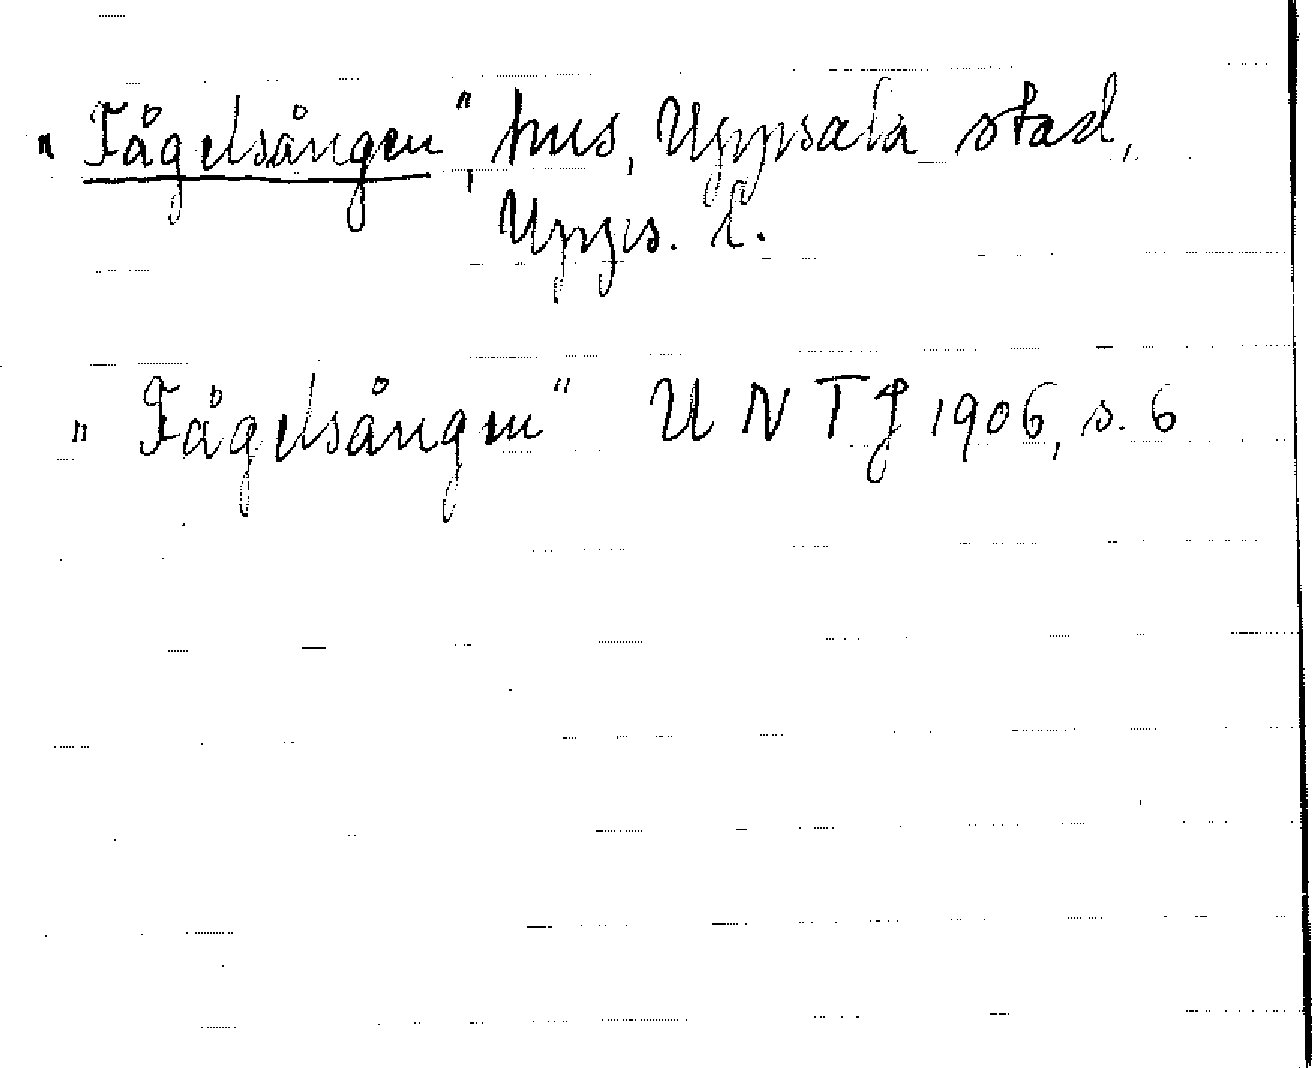 "Fågelsången", hus, Uppsala stad,
Upps. l.
"Fågelsången" UNTJ 1906, s. 6